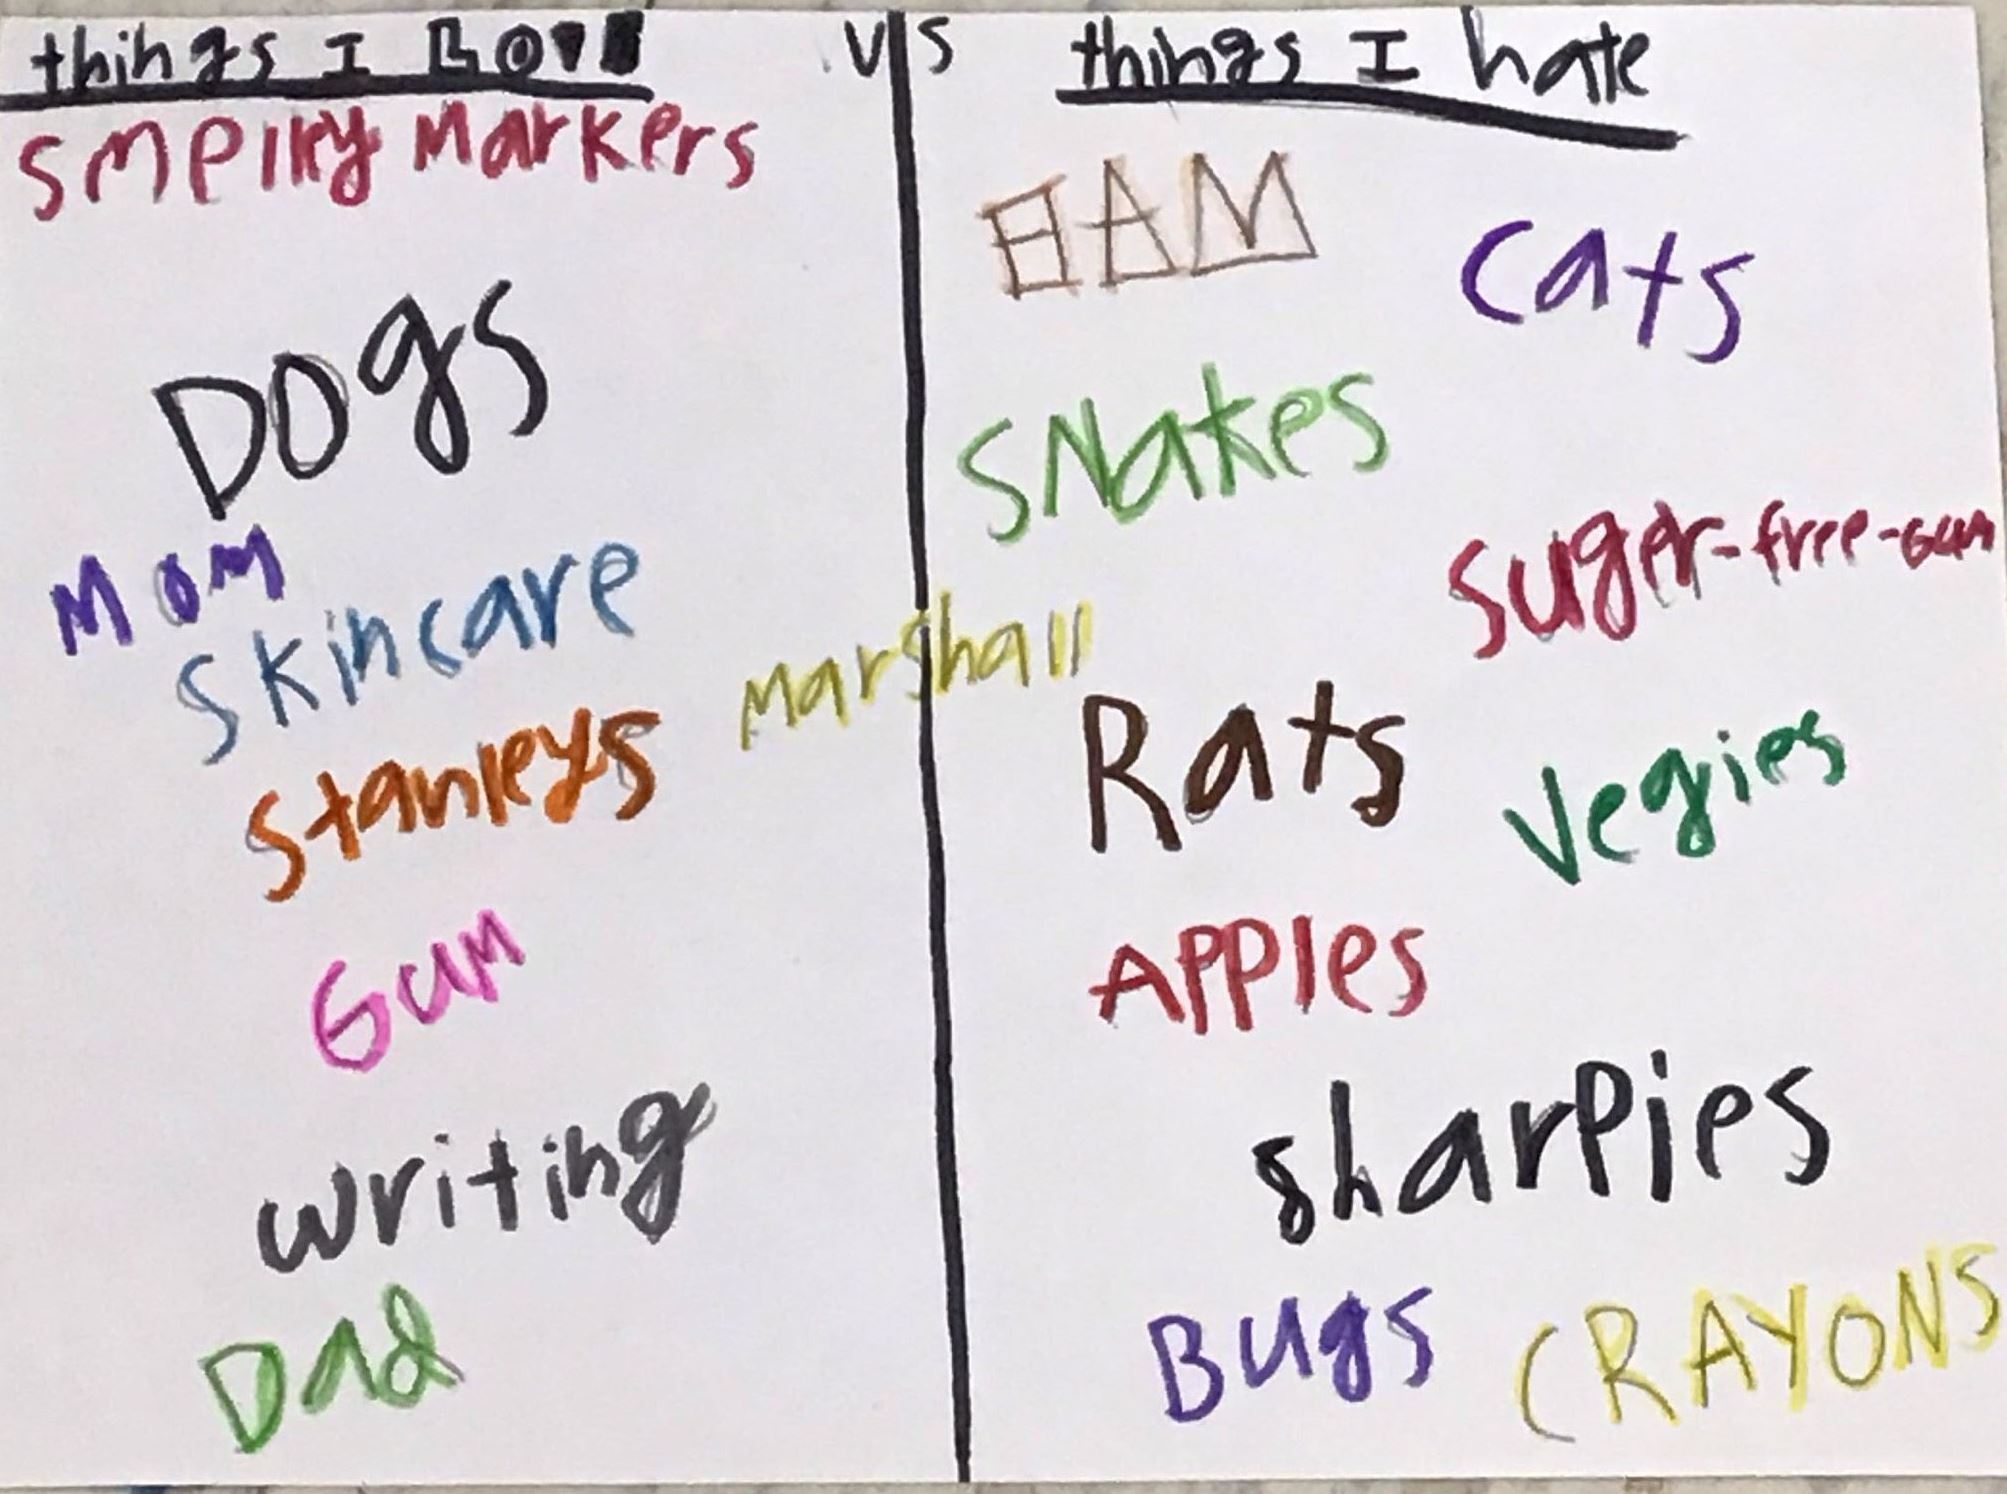 things I LOVE vs things I hate
smelly Markers
HAM
cats
Dogs
SNakes
Mom
skincare
suger-free-Gum
marshall
stanleys
Rats
Vegies
Gum
APPles
writing
sharpies
Dad
Bugs
CRAYONS